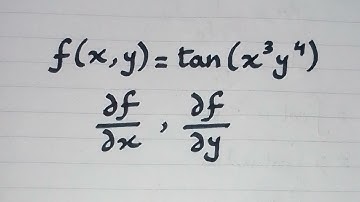 f(x,y) = tan(x³y⁴)
∂f/∂x , ∂f/∂y